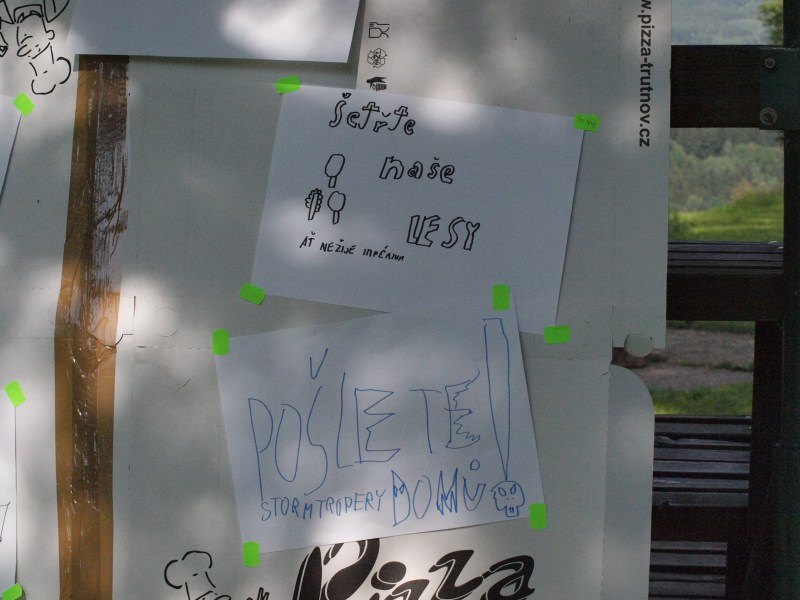 www.pizza-trutnov.cz
Šetřte
naše
LESY
AŤ NEŽIJE IMPÉRIUM
POŠLETE
STORMTROPERY DOMŮ!
Pizza